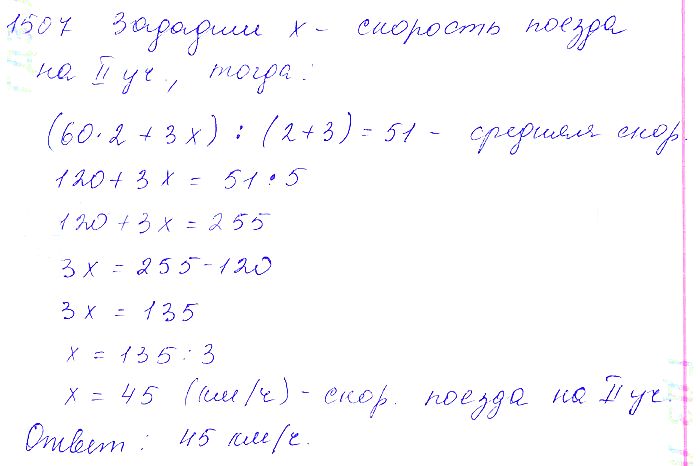 1507 Зададим x - скорость поезда
на II уч., тогда:
(60·2 + 3x) : (2+3) = 51 - средняя скор.
120 + 3x = 51·5
120 + 3x = 255
3x = 255-120
3x = 135
x = 135:3
x = 45 (км/ч) - скор. поезда на II уч.
Ответ: 45 км/ч.